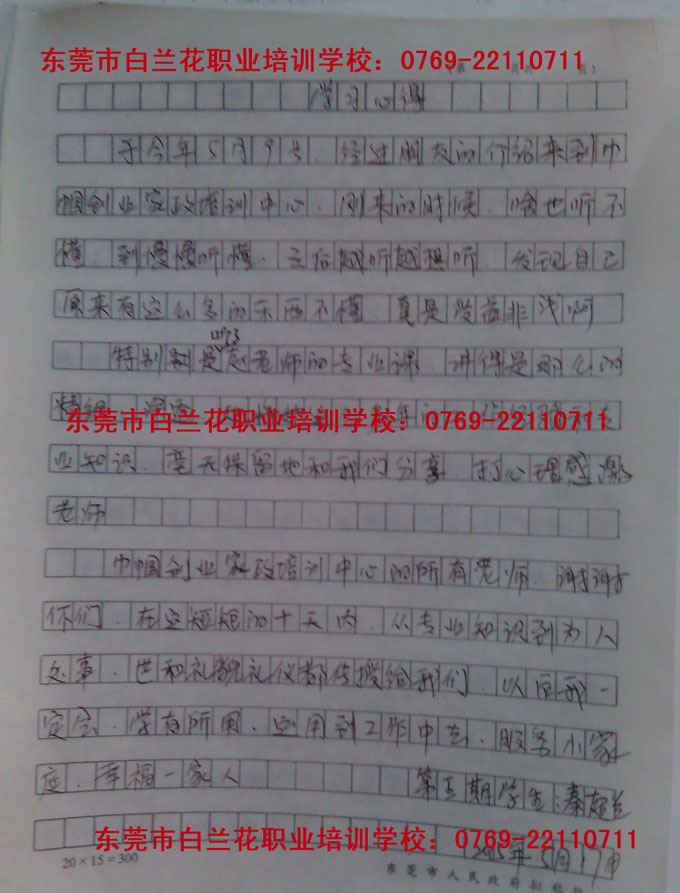 东莞市白兰花职业培训学校：0769-22110711
学习心得
于今年5月9号.经过朋友的介绍来到巾
帼创业家政培训中心.刚来的时候.啥也听不
懂.到慢慢听懂.之后越听越想听.发现自己
原来有这么多的东西不懂.真是受益非浅啊
特别别是赵老师的专业课.讲得是那么的
精细
东莞市白兰花职业培训学校：0769-22110711
业知识.毫无保留地和我们分享 打心理感激
老师
巾帼创业家政培训中心的所有老师.谢谢
你们.在这短短的十天内.从专业知识到为人
处事.世和礼貌礼仪都传授给我们.以后我一
定会.学有所用.运用到工作中去.服务小家
庭.幸福一家人 第五期学生:秦
东莞市白兰花职业培训学校：0769-22110711
2015年5月17日
20×15=300
东莞市人民政府